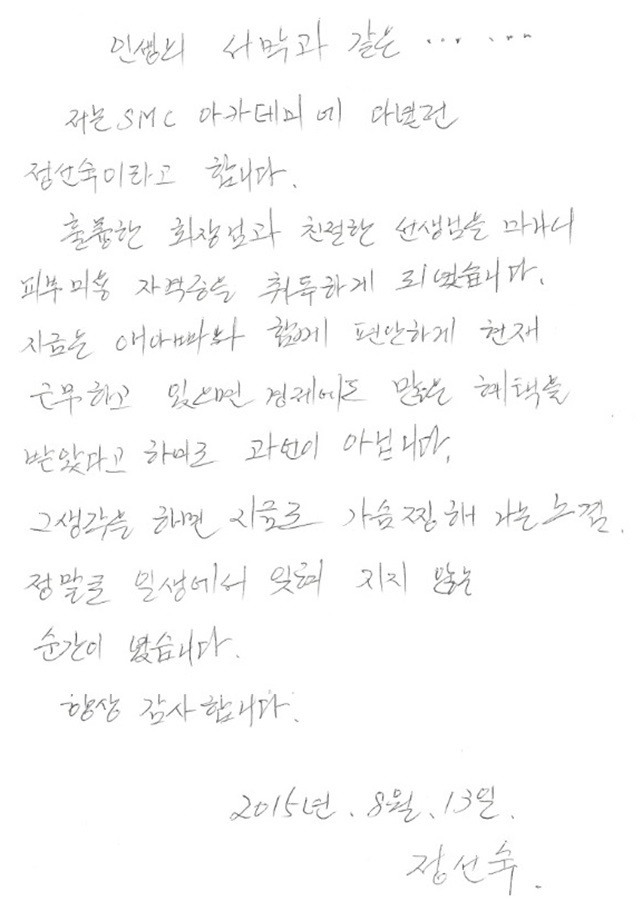 인생의 서막과 같은 ... ...
저는 SMC 아카데미에 다녔던
정선숙이라고 합니다.
훌륭한 회장님과 친절한 선생님을 마나니
피부미용 자격증을 취득하게 되였습니다.
지금은 애아빠와 함께 편안하게 현재
근무하고 있으면 경제에도 많은 혜택을
받았다고 하여도 과언이 아닙니다.
그생각을 하면 지금도 가슴찡해 나는 느낌.
정말로 일생에서 잊혀 지지 않는
순간이 였습니다.
항상 감사합니다.
2015년. 8월. 13일.
정선숙.